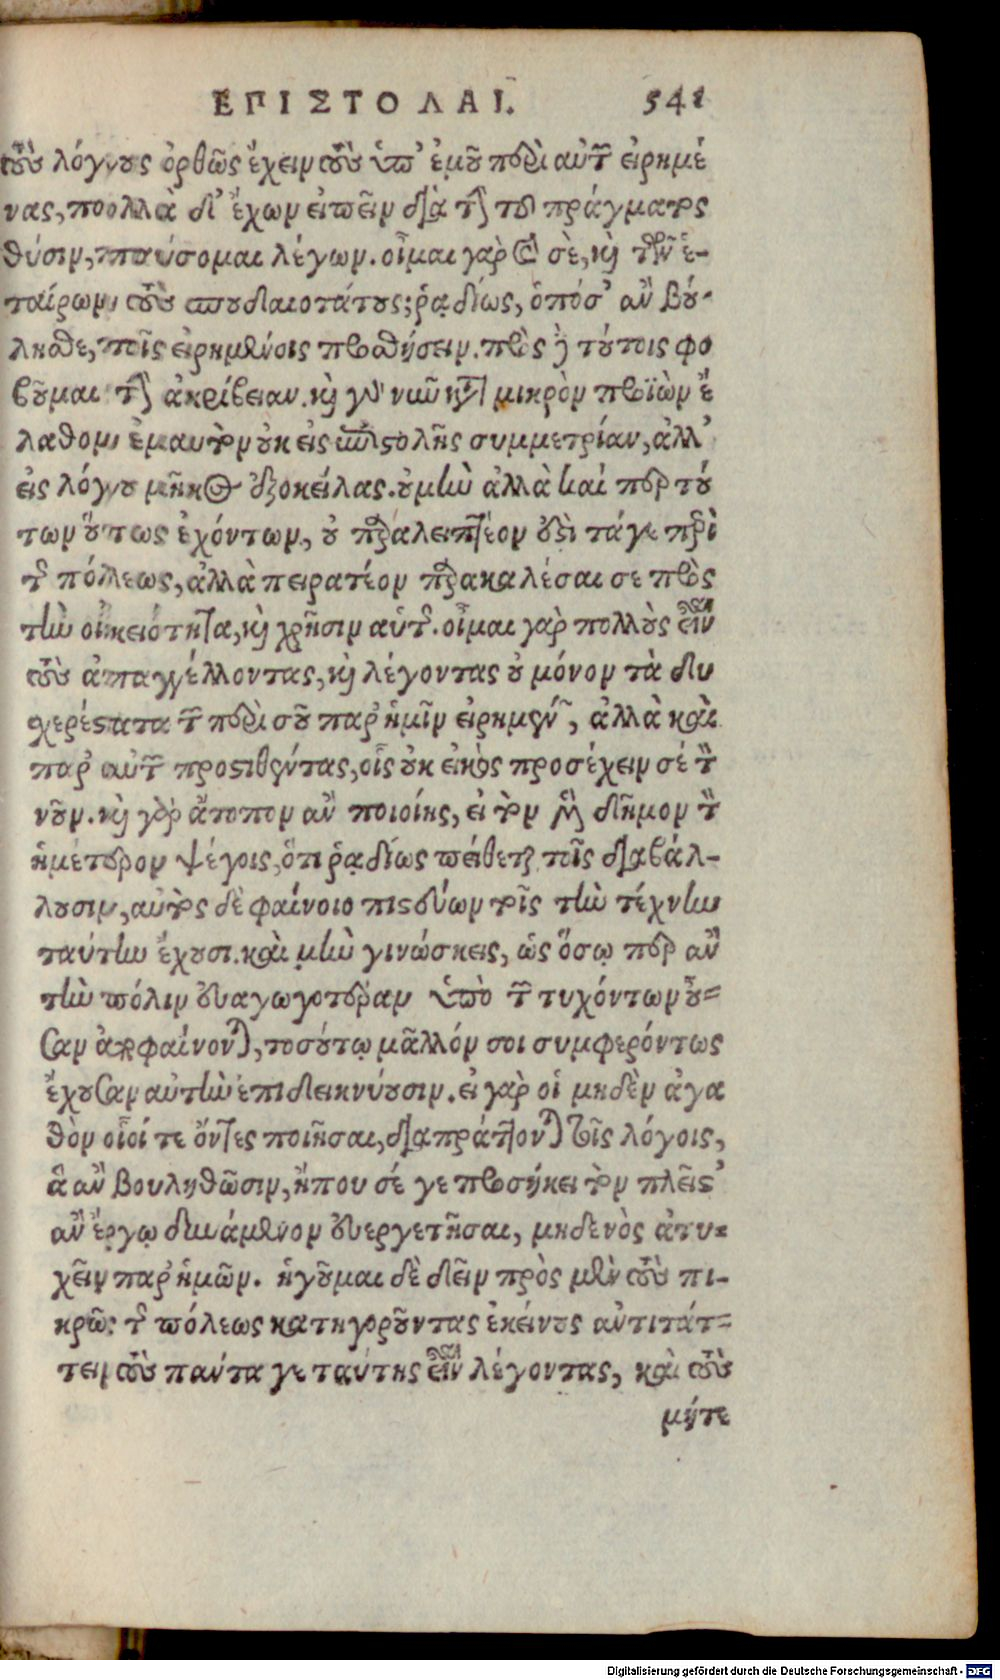 ΕΠΙΣΤΟΛΑΙ. 541
τοὺς λόγους ὀρθῶς ἔχειν τοὺς ὑπ' ἐμοῦ περὶ αὐτῶν εἰρημέ
νους, πολλὰ δ' ἔχων εἰπεῖν διὰ τὴν τοῦ πράγματος
φύσιν, παύσομαι λέγων. οἶμαι γὰρ καὶ σὲ, καὶ τῶν ἑ-
ταίρων τοὺς σπουδαιοτάτους, ῥᾳδίως, ὁπόσ' ἂν βού-
ληθε, τοῖς εἰρημένοις προσθήσειν. πρὸς δὲ τούτοις φο
βοῦμαι τὴν ἀκρίβειαν. καὶ γὰρ νῦν κατὰ μικρὸν προϊὼν ἔ
λαθον ἐμαυτὸν οὐκ εἰς ἐπιστολῆς συμμετρίαν, ἀλλ'
εἰς λόγου μῆκος ἐξοκείλας. οὐ μὴν ἀλλὰ καί περ τού
των οὕτως ἐχόντων, οὐ παραλειπτέον ἐστὶ τά γε περὶ
τῆς πόλεως, ἀλλὰ πειρατέον παρακαλέσαι σε πρὸς
τὴν οἰκειότητα, καὶ χρῆσιν αὐτῆς. οἶμαι γὰρ πολλοὺς εἶναι
τοὺς ἀπαγγέλλοντας, καὶ λέγοντας οὐ μόνον τὰ δυ
χερέστατα τῶν περὶ σοῦ παρ' ἡμῖν εἰρημένων, ἀλλὰ καὶ
παρ' αὐτῶν προστιθέντας, οἷς οὐκ εἰκὸς προσέχειν σέ τὸν
νοῦν. καὶ γὰρ ἄτοπον ἂν ποιοίης, εἰ τὸν μὲν δῆμον τὸν
ἡμέτερον ψέγοις, ὅτι ῥᾳδίως πείθεται τοῖς διαβάλ-
λουσιν, αὐτὸς δὲ φαίνοιο πιστεύων τοῖς τὴν τέχνην
ταύτην ἔχουσι. καὶ μὴν γινώσκεις, ὡς ὅσῳ περ ἂν
τὴν πόλιν εὐαγωγοτέραν ὑπὸ τῶν τυχόντων οὖ-
σαν ἀποφαίνονται, τοσούτῳ μᾶλλόν σοι συμφερόντως
ἔχουσαν αὐτὴν ἐπιδεικνύουσιν. εἰ γὰρ οἱ μηδὲν ἀγα
θὸν οἷοί τε ὄντες ποιῆσαι, διαπράττονται τοῖς λόγοις,
ἃ ἂν βουληθῶσιν, ἤπου σέ γε προσήκει τὸν πλεῖστ'
ἂν ἔργῳ δυνάμενον εὐεργετῆσαι, μηδενὸς ἀτυ-
χεῖν παρ' ἡμῶν. ἡγοῦμαι δὲ δεῖν πρὸς μὲν τοὺς πι-
κρῶς τῆς πόλεως κατηγοροῦντας ἐκείνους ἀντιτάτ-
τειν τοὺς πάντα γε ταύτης εἶναι λέγοντας, καὶ τοὺς
μήτε
Digitalisierung gefördert durch die Deutsche Forschungsgemeinschaft - DFG